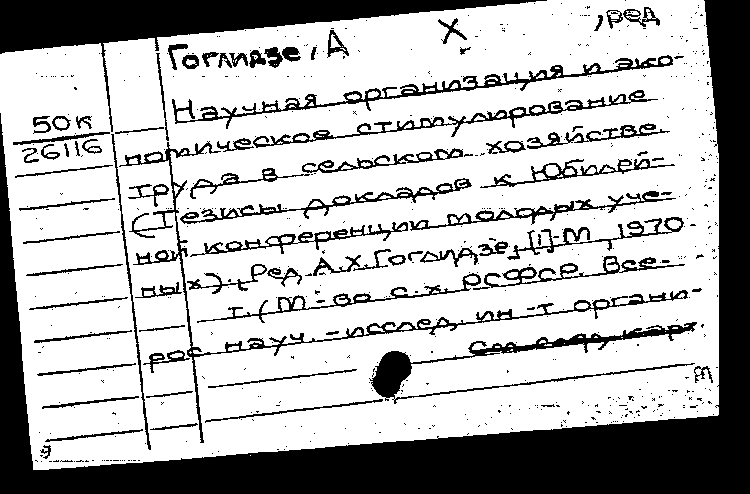 Гоглидзе, А Х , ред
50к
26116
Научная организация и эко-
номическое стимулирование
труда в сельском хозяйстве.
(Тезисы докладов к Юбилей-
ной конференции молодых уче-
ных). Ред А.Х.Гоглидзе, [1]. М, 1970
т. (М-во с.х. РСФСР. Все-
рос науч.-исслед, ин-т органи-
См след, карт.